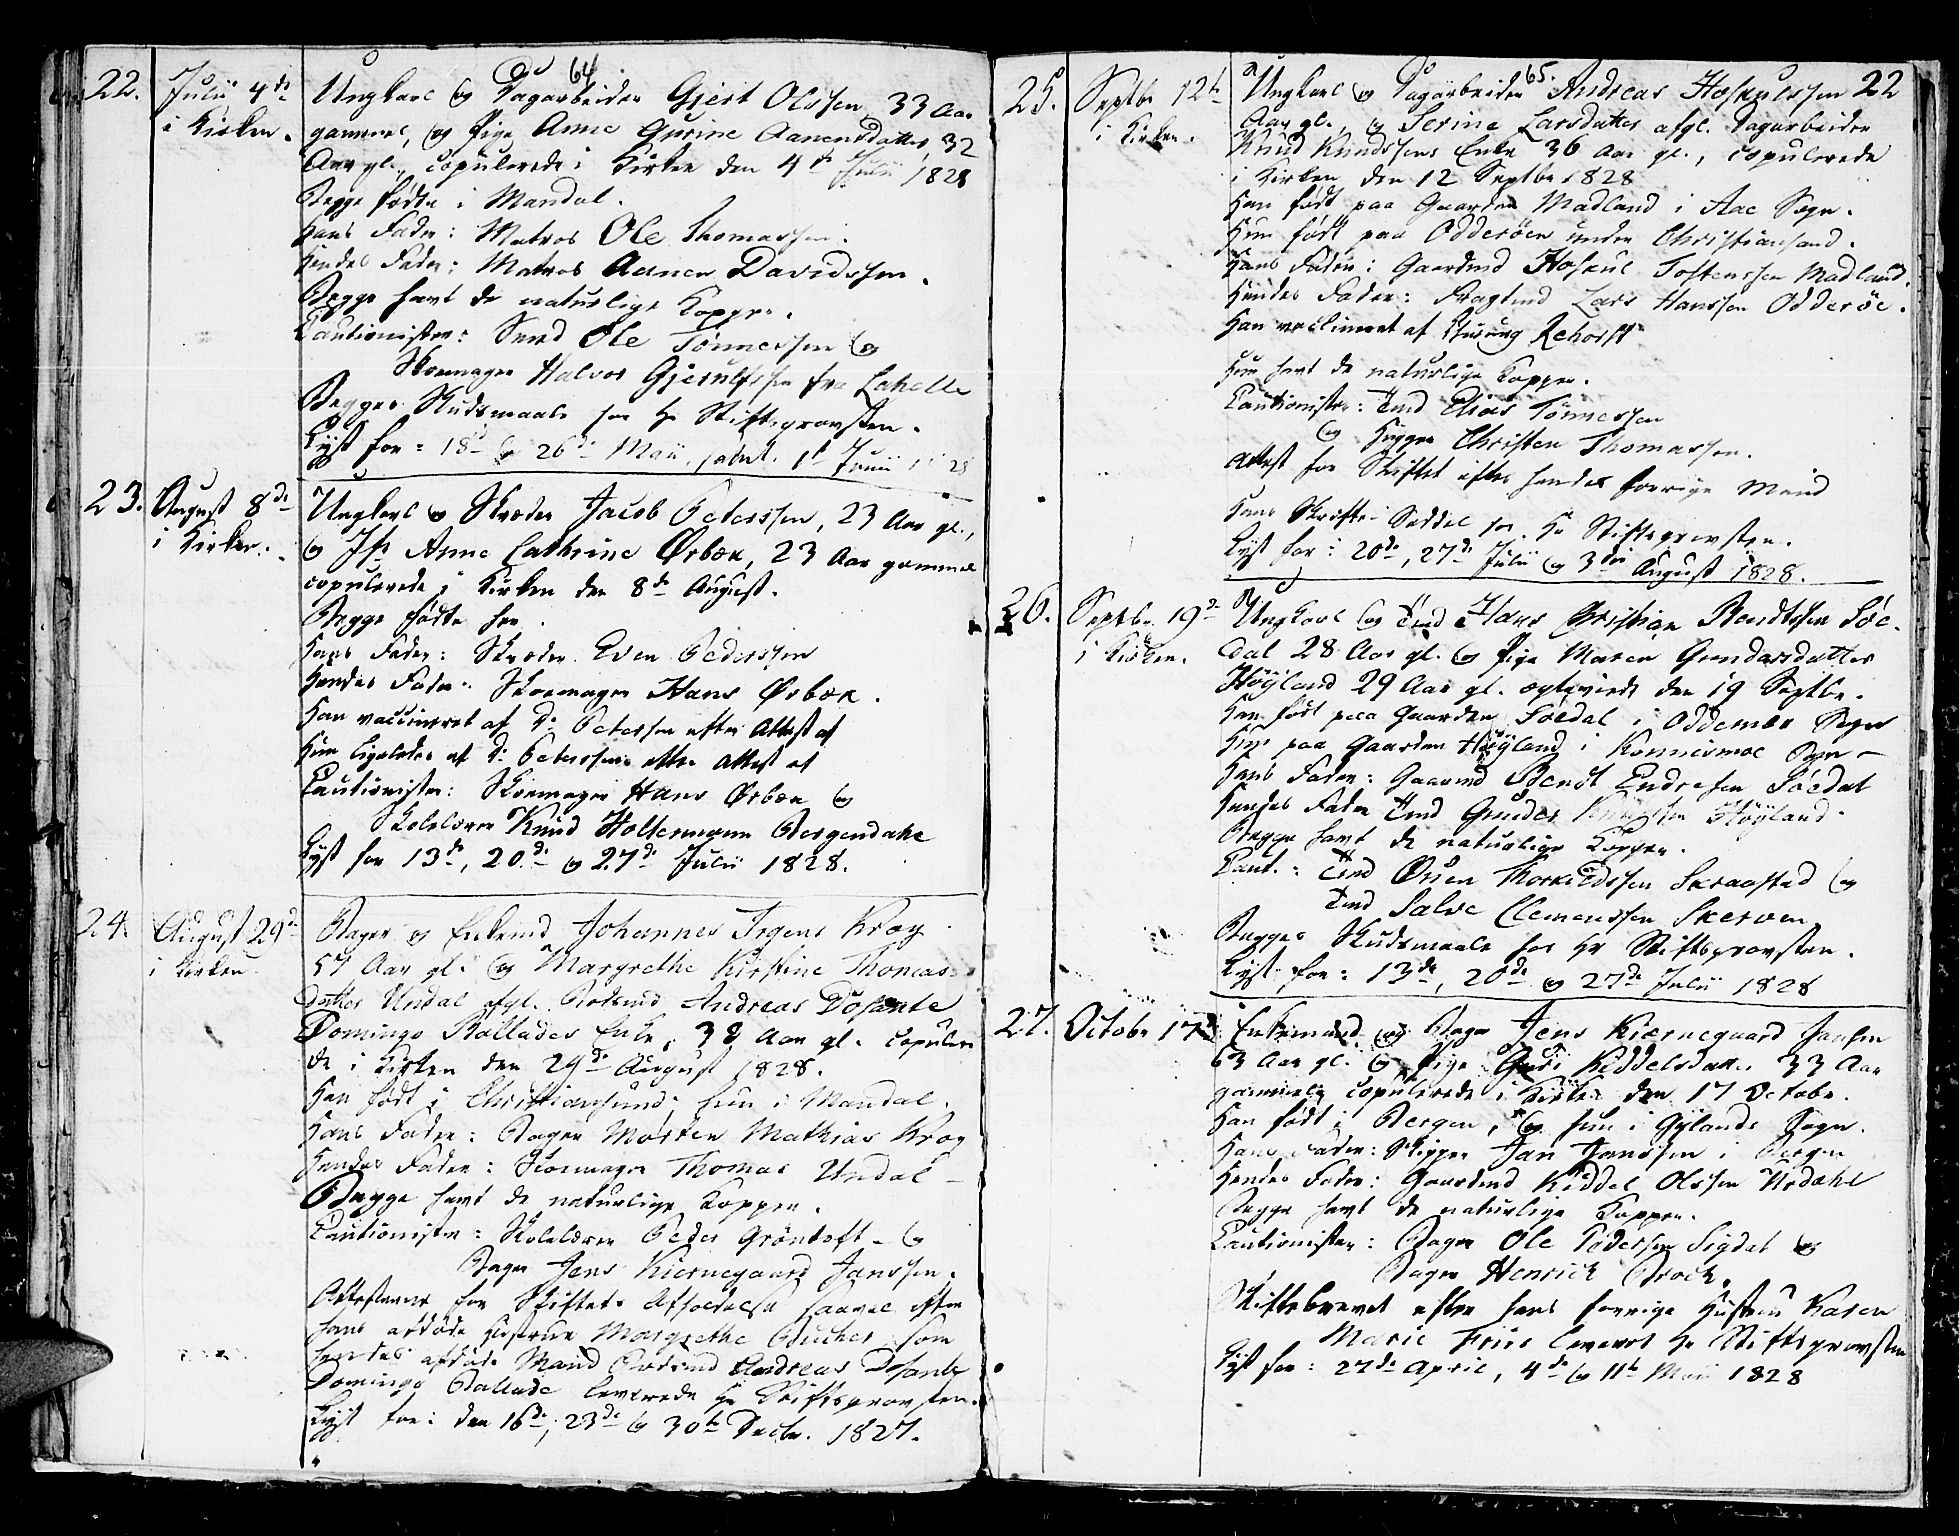 64.
22. Julii 4de Ungkarl og Dagarbeider Gjert Olssen, 33 Aar
i Kirken. gammel, og Pige Anne Gurine Aanensdatter, 32
Aar gl., copulerede i Kirken den 4de Julii 1828
Begge fødte i Mandal.
Hans Fader: Matros Ole Thomassen.
Hendes Fader: Matros Aanen Davidssen.
Begge havt de naturlige Kopper.
Cautionister: Ole Tønnessen og
Skoemager Halvor Gjerulfssen fra Lahelle
Begges Skudsmaale for Hr Stiftsprovsten.
Lyst for: 18de og 26de Maii, samt 1te Junii 1828
23. August 8de Ungkarl og Skræder Jacob Peterssen, 23 Aar gl.,
i Kirken. og Jfr Anne Cathrine Ørbæk, 23 Aar gammel
copulerede i Kirken den 8de August.
Begge fødte her.
Hans Fader: Skræder Even Pederssen
Hendes Fader: Skoemager Hans Ørbæk.
Han vaccineret af Dr Petersen efter Attest af
Hun ligeledes af Dr Peterssen efter Attest af
Cautionister: Skoemager Hans Ørbæk og
Skolelærer Knud Holtermann Bergendahl
Lyst for 13de, 20de og 27de Julii 1828.
24. August 29de Bager og Enkemd Johannes Irgens Krog
i Kirken. 57 Aar gl. og Margrethe Kirstine Thomas-
datter Undal afgl. Andreas Dosante
Domingo Ballades Enke, 38 Aar gl. copulere
de i Kirken den 29de August 1828.
Han født i Christiansund, hun i Mandal.
Hans Fader: Bager Morten Mathias Krog
Hendes Fader: Skoemager Thomas Undal
Begge havt de naturlige Kopper.
Cautionister: Skolelærer Peder Gröntoft og
Bager Jens Kiernegaard Janssen.
Attesterne for Skiftets Afholdelse saavel efter
hans afdøde Hustrue Margrethe Bucher som
hendes afdøde Mand Andreas Dosante
Domingo Ballade leverede Hr Stiftsprovsten.
Lyst for: den 16de, 23de og 30te Decbr. 1827.
65. 22
25. Septbr 12te Ungkarl og Dagarbeider Andreas Hoskulssen 22
i Kirken. Aar gl., og Serine Larsdatter afgl. Dagarbeider
Knud Knudssens Enke 36 Aar gl., copulerede
i Kirken den 12 Septbr 1828
Han født paa Gaarden Madland i Aae Sogn.
Hun født paa Odderöen under Christiansand.
Hans Fader: Gaardmd Hoskul Tostenssen Madland.
Hendes Fader: Fragtmd Lars Hanssen Odderöe.
Han vaccineret af Chirurg Rehorst
Hun havt de naturlige Kopper.
Cautionister: Elias Tönnessen
og Christen Thomassen.
Attest for Skiftet efter hendes forrige Mand
Hans Skrifte-Seddel for Hr Stiftsprovsten.
Lyst for: 20de, 27de Julii og 3die August 1828.
26. Septbr 19de Ungkarl og Hans Christian Bendtsen Söe-
i Kirken. dal 28 Aar gl. og Pige Maren Gundersdatter
Höyland 29 Aar gl. ægteviede den 19 Septbr.
Han født paa Gaarden Söedal i Oddernæs Sogn
Hun paa Gaarden Höyland i Konnesmoe Sogn
Hans Fader: Gaardmd Bendt Endresen Söedal
Hendes Fader Gunder Höyland.
Begge havt de naturlige Kopper.
Caut.: Osuen Thorkildssen Skraastad og
Salve Clemenssen Skerven
Begges Skudsmaale for Hr Stiftsprovsten.
Lyst for: 13de, 20de og 27de Julii 1828
27. Octobr 17de Enkemand og Bager Jens Kiernegaard Jansen
63 Aar gl. og Pige Guri Kiddelsdatter 33 Aar
gammel, copulerede i Kirken den 17 Octobr.
Han født i Bergen, og hun i Gylands Sogn.
Hans Fader: Skipper Jan Janssen i Bergen
Hendes Fader: Gaardmd Kiddel Olssen Urdahl
Begge havt de naturlige Kopper.
Cautionister: Bager Ole Pedersen Sigdal og
Bager Henrich Brock.
Skiftebrevet efter hans forrige Hustrue Karen
Marie Friis leveret Hr Stiftsprovsten
Lyst for: 27de April, 4de og 11te Maii 1828